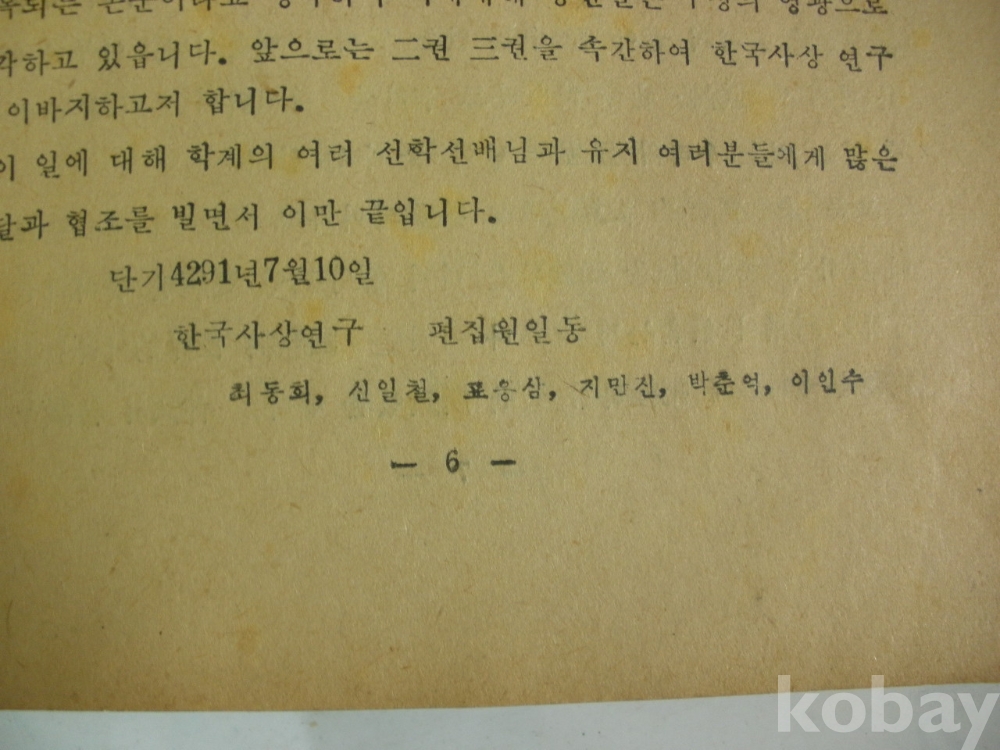 있읍니다. 앞으로는 二권 三권을 속간하여 한국사상 연구
이바지하고저 합니다.
이 일에 대해 학계의 여러 선학선배님과 유지 여러분들에게 많은
협조를 빌면서 이만 끝입니다.
단기4291년7월10일
한국사상연구 편집원일동
최동희, 신일철, 표응삼, 지만진, 박춘억, 이인수
— 6 —
kobay